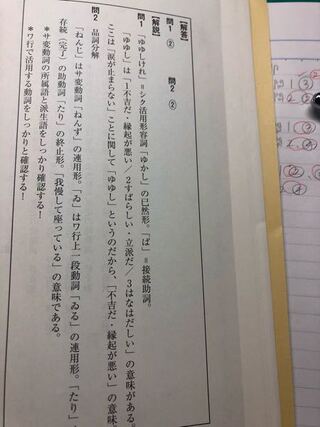 【解答】
問1 ② 問2 ②
【解説】
問1
「ゆゆしけれ」=シク活用形容詞「ゆかし」の已然形。「ば」=接続助詞。
「ゆゆし」は「1不吉だ・縁起が悪い/2すばらしい・立派だ/3はなはだしい」の意味がある。
ここは「涙が止まらない」ことに関して「ゆゆし」というのだから、「不吉だ・縁起が悪い」の意味
問2 品詞分解
「ねんじ」はサ変動詞「ねんず」の連用形。「ゐ」はワ行上一段動詞「ゐる」の連用形。「たり」
存続(完了)の助動詞「たり」の終止形。「我慢して座っている」の意味である。
*サ変動詞の所属語と派生語をしっかり確認する!
*ワ行で活用する動詞をしっかりと確認する!